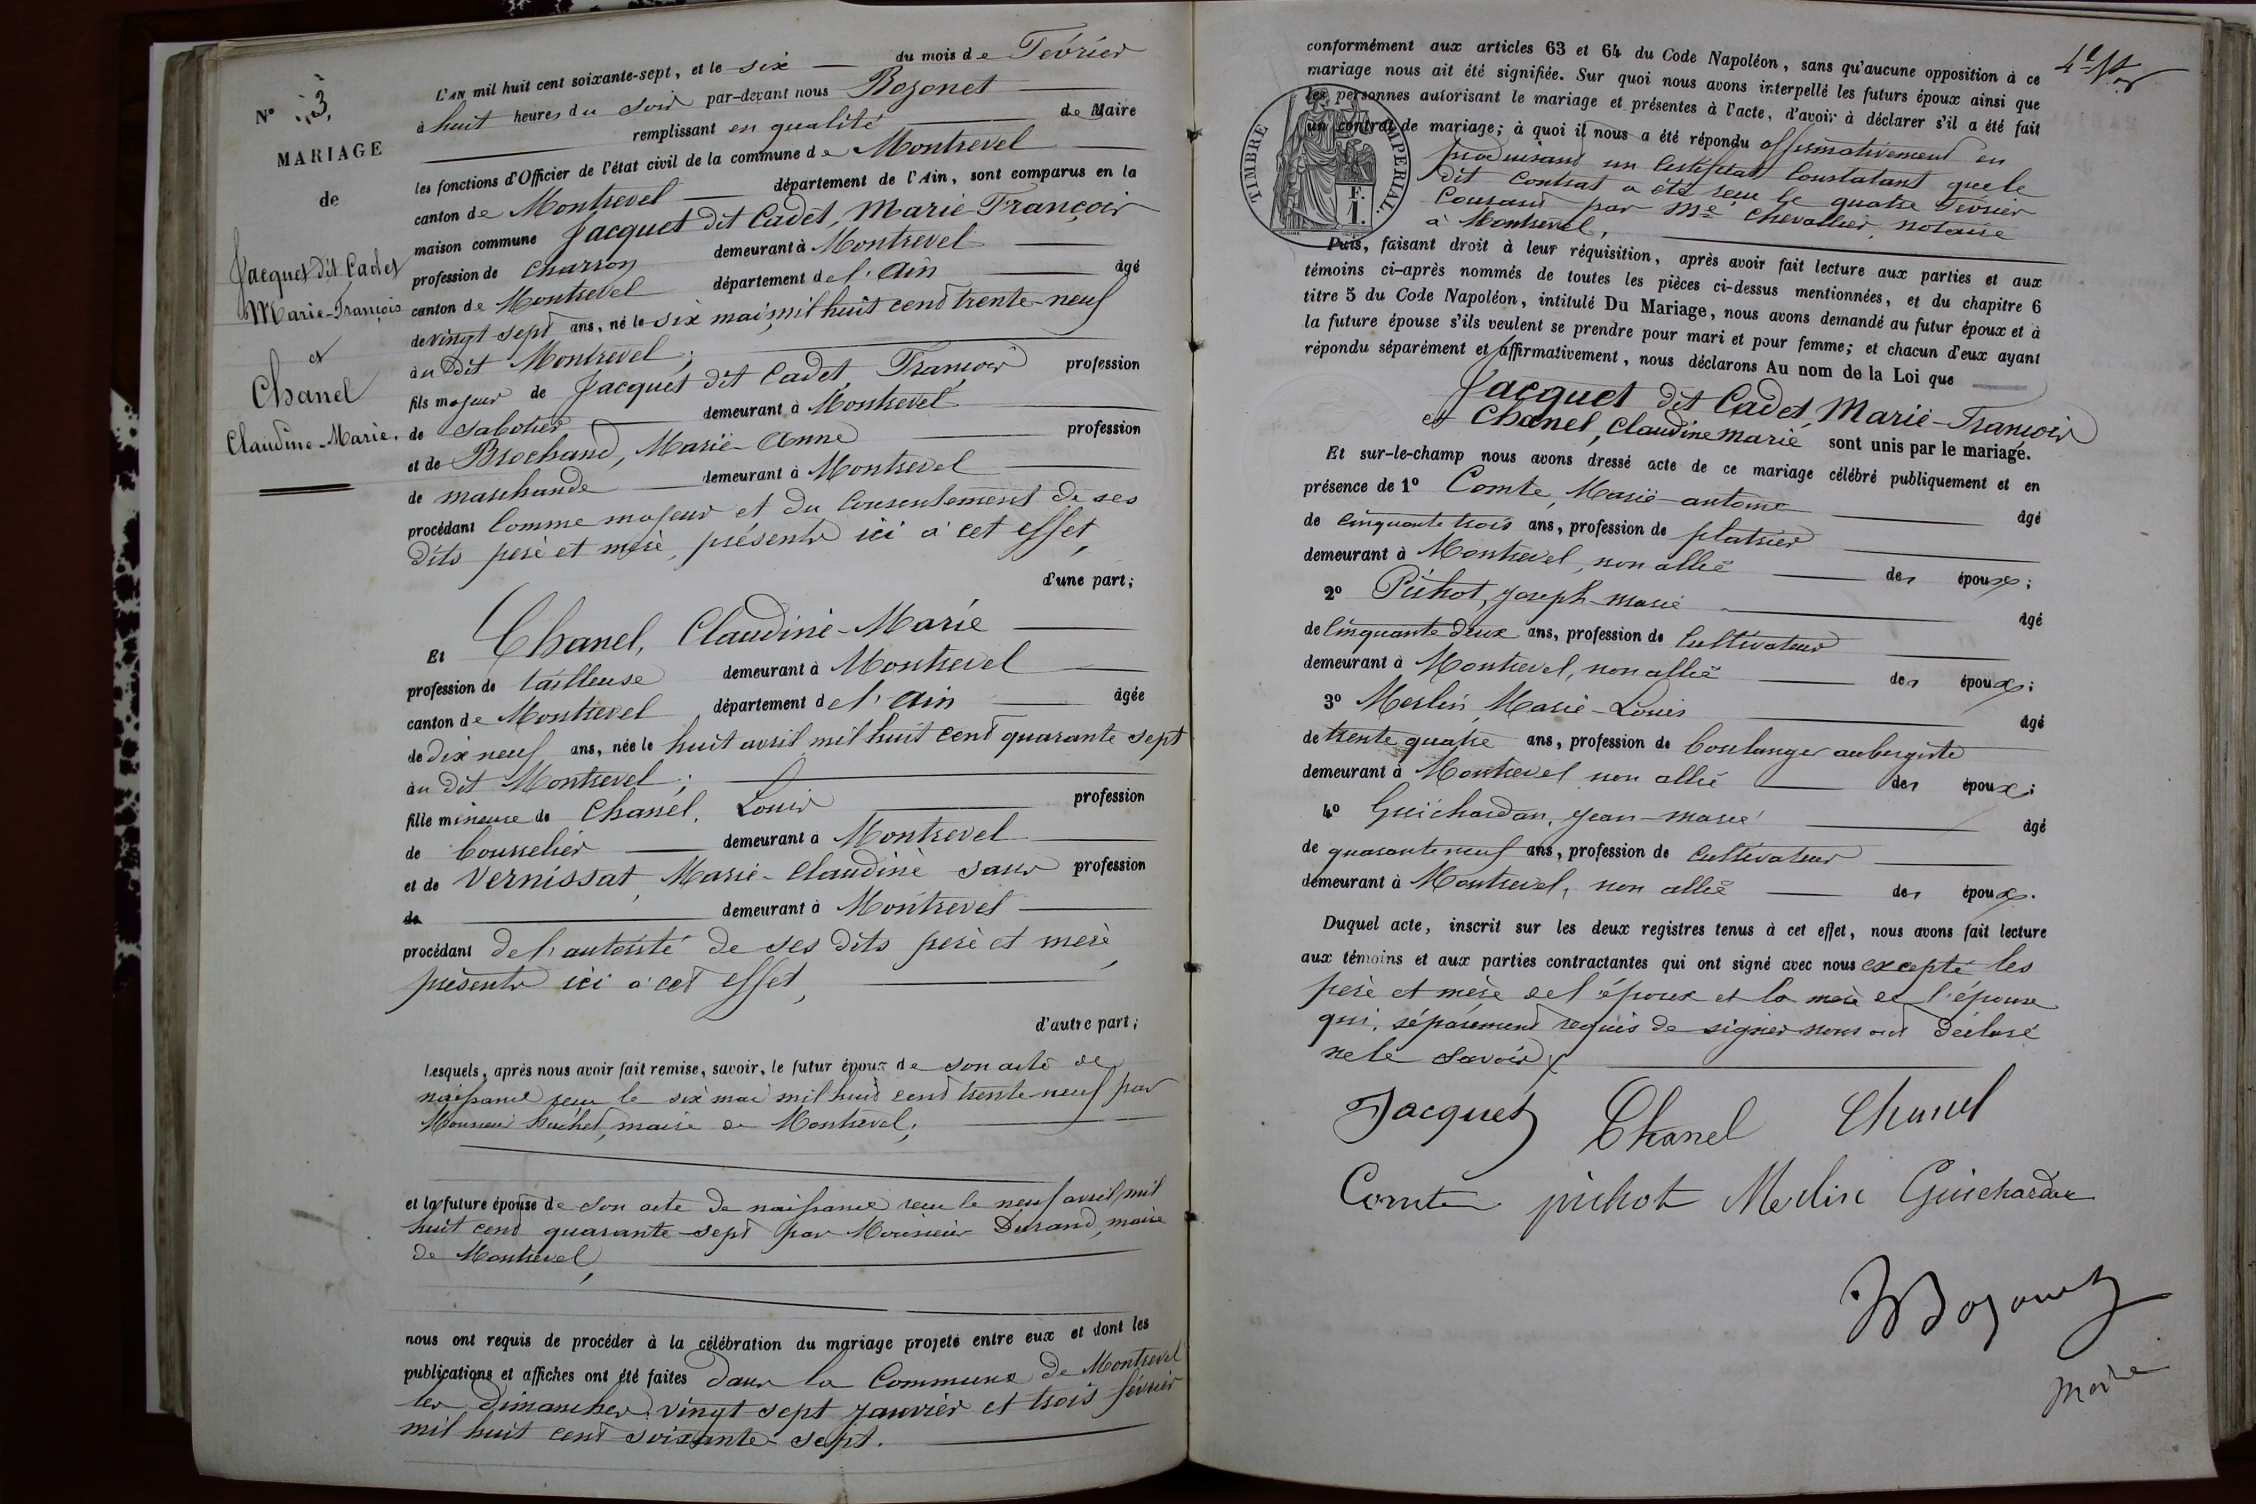 N° 3,
MARIAGE
de
Jacquet dit Cadet
Marie-François
et
Chanel
Claudine-Marie.
L'AN mil huit cent soixante-sept, et le six du mois de Février
à huit heures du soir par-devant nous Bozonet
remplissant en qualité de Maire
les fonctions d'Officier de l'état civil de la commune de Montrevel
canton de Montrevel département de l'Ain, sont comparus en la
maison commune Jacquet dit Cadet, Marie-François
profession de charron demeurant à Montrevel
canton de Montrevel département de l'Ain âgé
de vingt sept ans, né le six mai, mil huit cent trente-neuf
au dit Montrevel;
fils majeur de Jacquet dit Cadet, François profession
de sabotier demeurant à Montrevel
et de Brochand, Marie-Anne profession
de marchande demeurant à Montrevel
procédant comme majeur et du consentement de ses
dits père et mère, présents ici à cet effet,
d'une part;
Et Chanel, Claudine-Marie
profession de tailleuse demeurant à Montrevel
canton de Montrevel département de l'Ain âgée
de dix neuf ans, née le huit avril mil huit cent quarante sept
au dit Montrevel;
fille mineure de Chanel, Louis profession
de bourrelier demeurant à Montrevel
et de Vernissat, Marie-Claudine sans profession
de demeurant à Montrevel
procédant de l'autorité de ses dits père et mère
présents ici à cet effet,
d'autre part;
Lesquels, après nous avoir fait remise, savoir, le futur époux de son acte de
naissance reçu le six mai mil huit cent trente-neuf par
Monsieur Puchet, maire de Montrevel;
et la future épouse de son acte de naissance reçu le neuf avril mil
huit cent quarante-sept par Monsieur Durand, maire
de Montrevel,
nous ont requis de procéder à la célébration du mariage projeté entre eux et dont les
publications et affiches ont été faites dans la Commune de Montrevel
les dimanches vingt sept janvier et trois février
mil huit cent soixante-sept.
conformément aux articles 63 et 64 du Code Napoléon, sans qu'aucune opposition à ce
mariage nous ait été signifiée. Sur quoi nous avons interpellé les futurs époux ainsi que
les personnes autorisant le mariage et présentes à l'acte, d'avoir à déclarer s'il a été fait
un contrat de mariage; à quoi il nous a été répondu affirmativement en
produisant un certificat constatant que le
dit contrat a été reçu le quatre février
courant par Me Chevallier, notaire
à Montrevel,
TIMBRE IMPERIAL.
F.
1.
Puis, faisant droit à leur réquisition, après avoir fait lecture aux parties et aux
témoins ci-après nommés de toutes les pièces ci-dessus mentionnées, et du chapitre 6
titre 5 du Code Napoléon, intitulé Du Mariage, nous avons demandé au futur époux et à
la future épouse s'ils veulent se prendre pour mari et pour femme; et chacun d'eux ayant
répondu séparément et affirmativement, nous déclarons Au nom de la Loi que
Jacquet dit Cadet, Marie-François
et Chanel, Claudine Marie sont unis par le mariage.
Et sur-le-champ nous avons dressé acte de ce mariage célébré publiquement et en
présence de 1° Comte, Marie-antoine âgé
de cinquante trois ans, profession de platrier
demeurant à Montrevel, non allié des époux;
2° Pichot, Joseph-Marie âgé
de cinquante deux ans, profession de cultivateur
demeurant à Montrevel, non allié des époux;
3° Merlin, Marie-Louis âgé
de trente quatre ans, profession de boulanger aubergiste
demeurant à Montrevel non allié des époux;
4° Guichardan, Jean-Marie âgé
de quarante neuf ans, profession de cultivateur
demeurant à Montrevel, non allié des époux.
Duquel acte, inscrit sur les deux registres tenus à cet effet, nous avons fait lecture
aux témoins et aux parties contractantes qui ont signé avec nous excepté les
père et mère de l'époux et la mère de l'épouse
qui, séparément requis de signer nous ont déclaré
ne le savoir
Jacquet Chanel Chanel
Comte pichot Merlin Guichardan
Bozonet
Maire